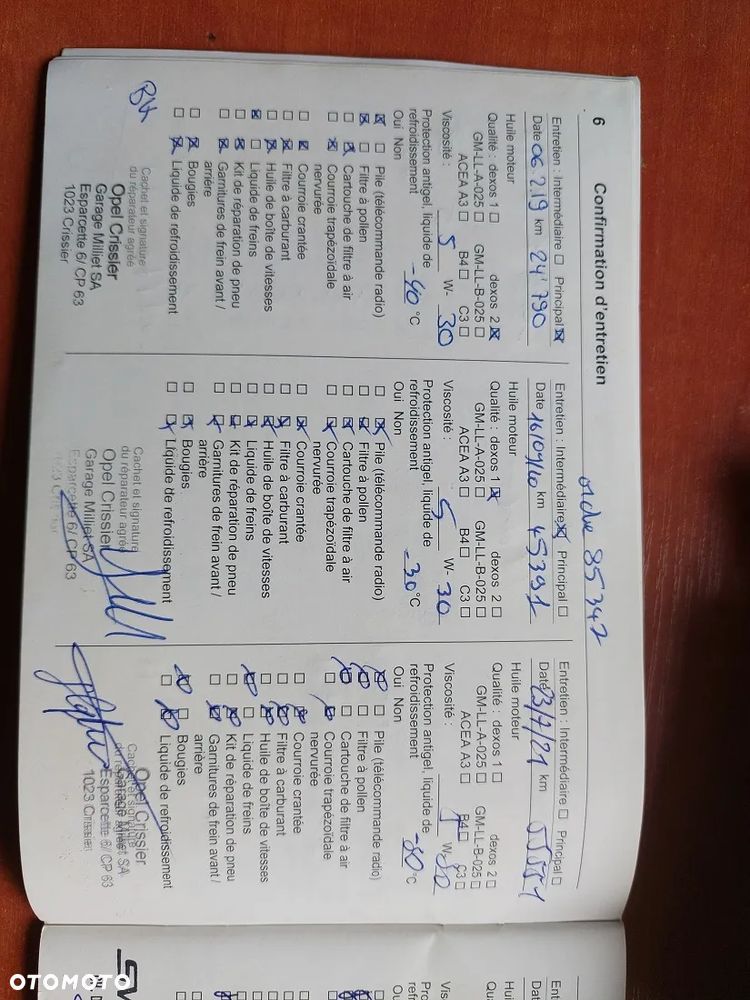 6 Confirmation d'entretien
85 347
Entretien : Intermédiaire ☐ Principal ☒
Date 06.2.19 km 24'790
Huile moteur
Qualité : dexos 1 ☐ dexos 2 ☒
GM-LL-A-025 ☐ GM-LL-B-025 ☐
ACEA A3 ☐ B4 ☐ C3 ☐
Viscosité : 5 W- 30
Protection antigel, liquide de
refroidissement -40 °C
Oui Non
☒ ☐ Pile (télécommande radio)
☒ ☐ Filtre à pollen
☐ ☒ Cartouche de filtre à air
☐ ☒ Courroie trapézoïdale
nervurée
☐ ☒ Courroie crantée
☐ ☒ Filtre à carburant
☐ ☒ Huile de boîte de vitesses
☒ ☐ Liquide de freins
☐ ☒ Kit de réparation de pneu
☐ ☒ Garnitures de frein avant /
arrière
☐ ☒ Bougies
☐ ☒ Liquide de refroidissement
Cachet et signature
du réparateur agréé
Opel Crissier
Garage Milliet SA
Esparcette 6/ CP 63
1023 Crissier
Entretien : Intermédiaire ☒ Principal ☐
Date km 45391
Huile moteur
Qualité : dexos 1 ☒ dexos 2 ☐
GM-LL-A-025 ☐ GM-LL-B-025 ☐
ACEA A3 ☐ B4 ☐ C3 ☐
Viscosité : 5 W- 30
Protection antigel, liquide de
refroidissement -30 °C
Oui Non
☐ ☒ Pile (télécommande radio)
☐ ☒ Filtre à pollen
☐ ☒ Cartouche de filtre à air
☐ ☒ Courroie trapézoïdale
nervurée
☐ ☒ Courroie crantée
☐ ☒ Filtre à carburant
☐ ☒ Huile de boîte de vitesses
☐ ☒ Liquide de freins
☐ ☒ Kit de réparation de pneu
☐ ☒ Garnitures de frein avant /
arrière
☐ ☒ Bougies
☐ ☒ Liquide de refroidissement
Cachet et signature
du réparateur agréé
Opel Crissier
Garage Milliet SA
Esparcette 6/ CP 63
Entretien : Intermédiaire ☐ Principal ☐
Date 23/7/21 km
Huile moteur
Qualité : dexos 1 ☐ dexos 2 ☐
GM-LL-A-025 ☐ GM-LL-B-025 ☐
ACEA A3 ☐ B4 ☐ C3 ☐
Viscosité : W- 30
Protection antigel, liquide de
refroidissement -30 °C
Oui Non
☒ ☐ Pile (télécommande radio)
☒ ☐ Filtre à pollen
☒ ☐ Cartouche de filtre à air
☐ ☒ Courroie trapézoïdale
nervurée
☐ ☒ Courroie crantée
☐ ☒ Filtre à carburant
☐ ☒ Huile de boîte de vitesses
☒ ☐ Liquide de freins
☐ ☒ Kit de réparation de pneu
☐ ☒ Garnitures de frein avant /
arrière
☒ ☐ Bougies
☐ ☒ Liquide de refroidissement
Cachet et signature
du réparateur agréé
Opel Crissier
Garage Milliet SA
Esparcette 6/ CP 63
1023 Crissier
OTOMOTO